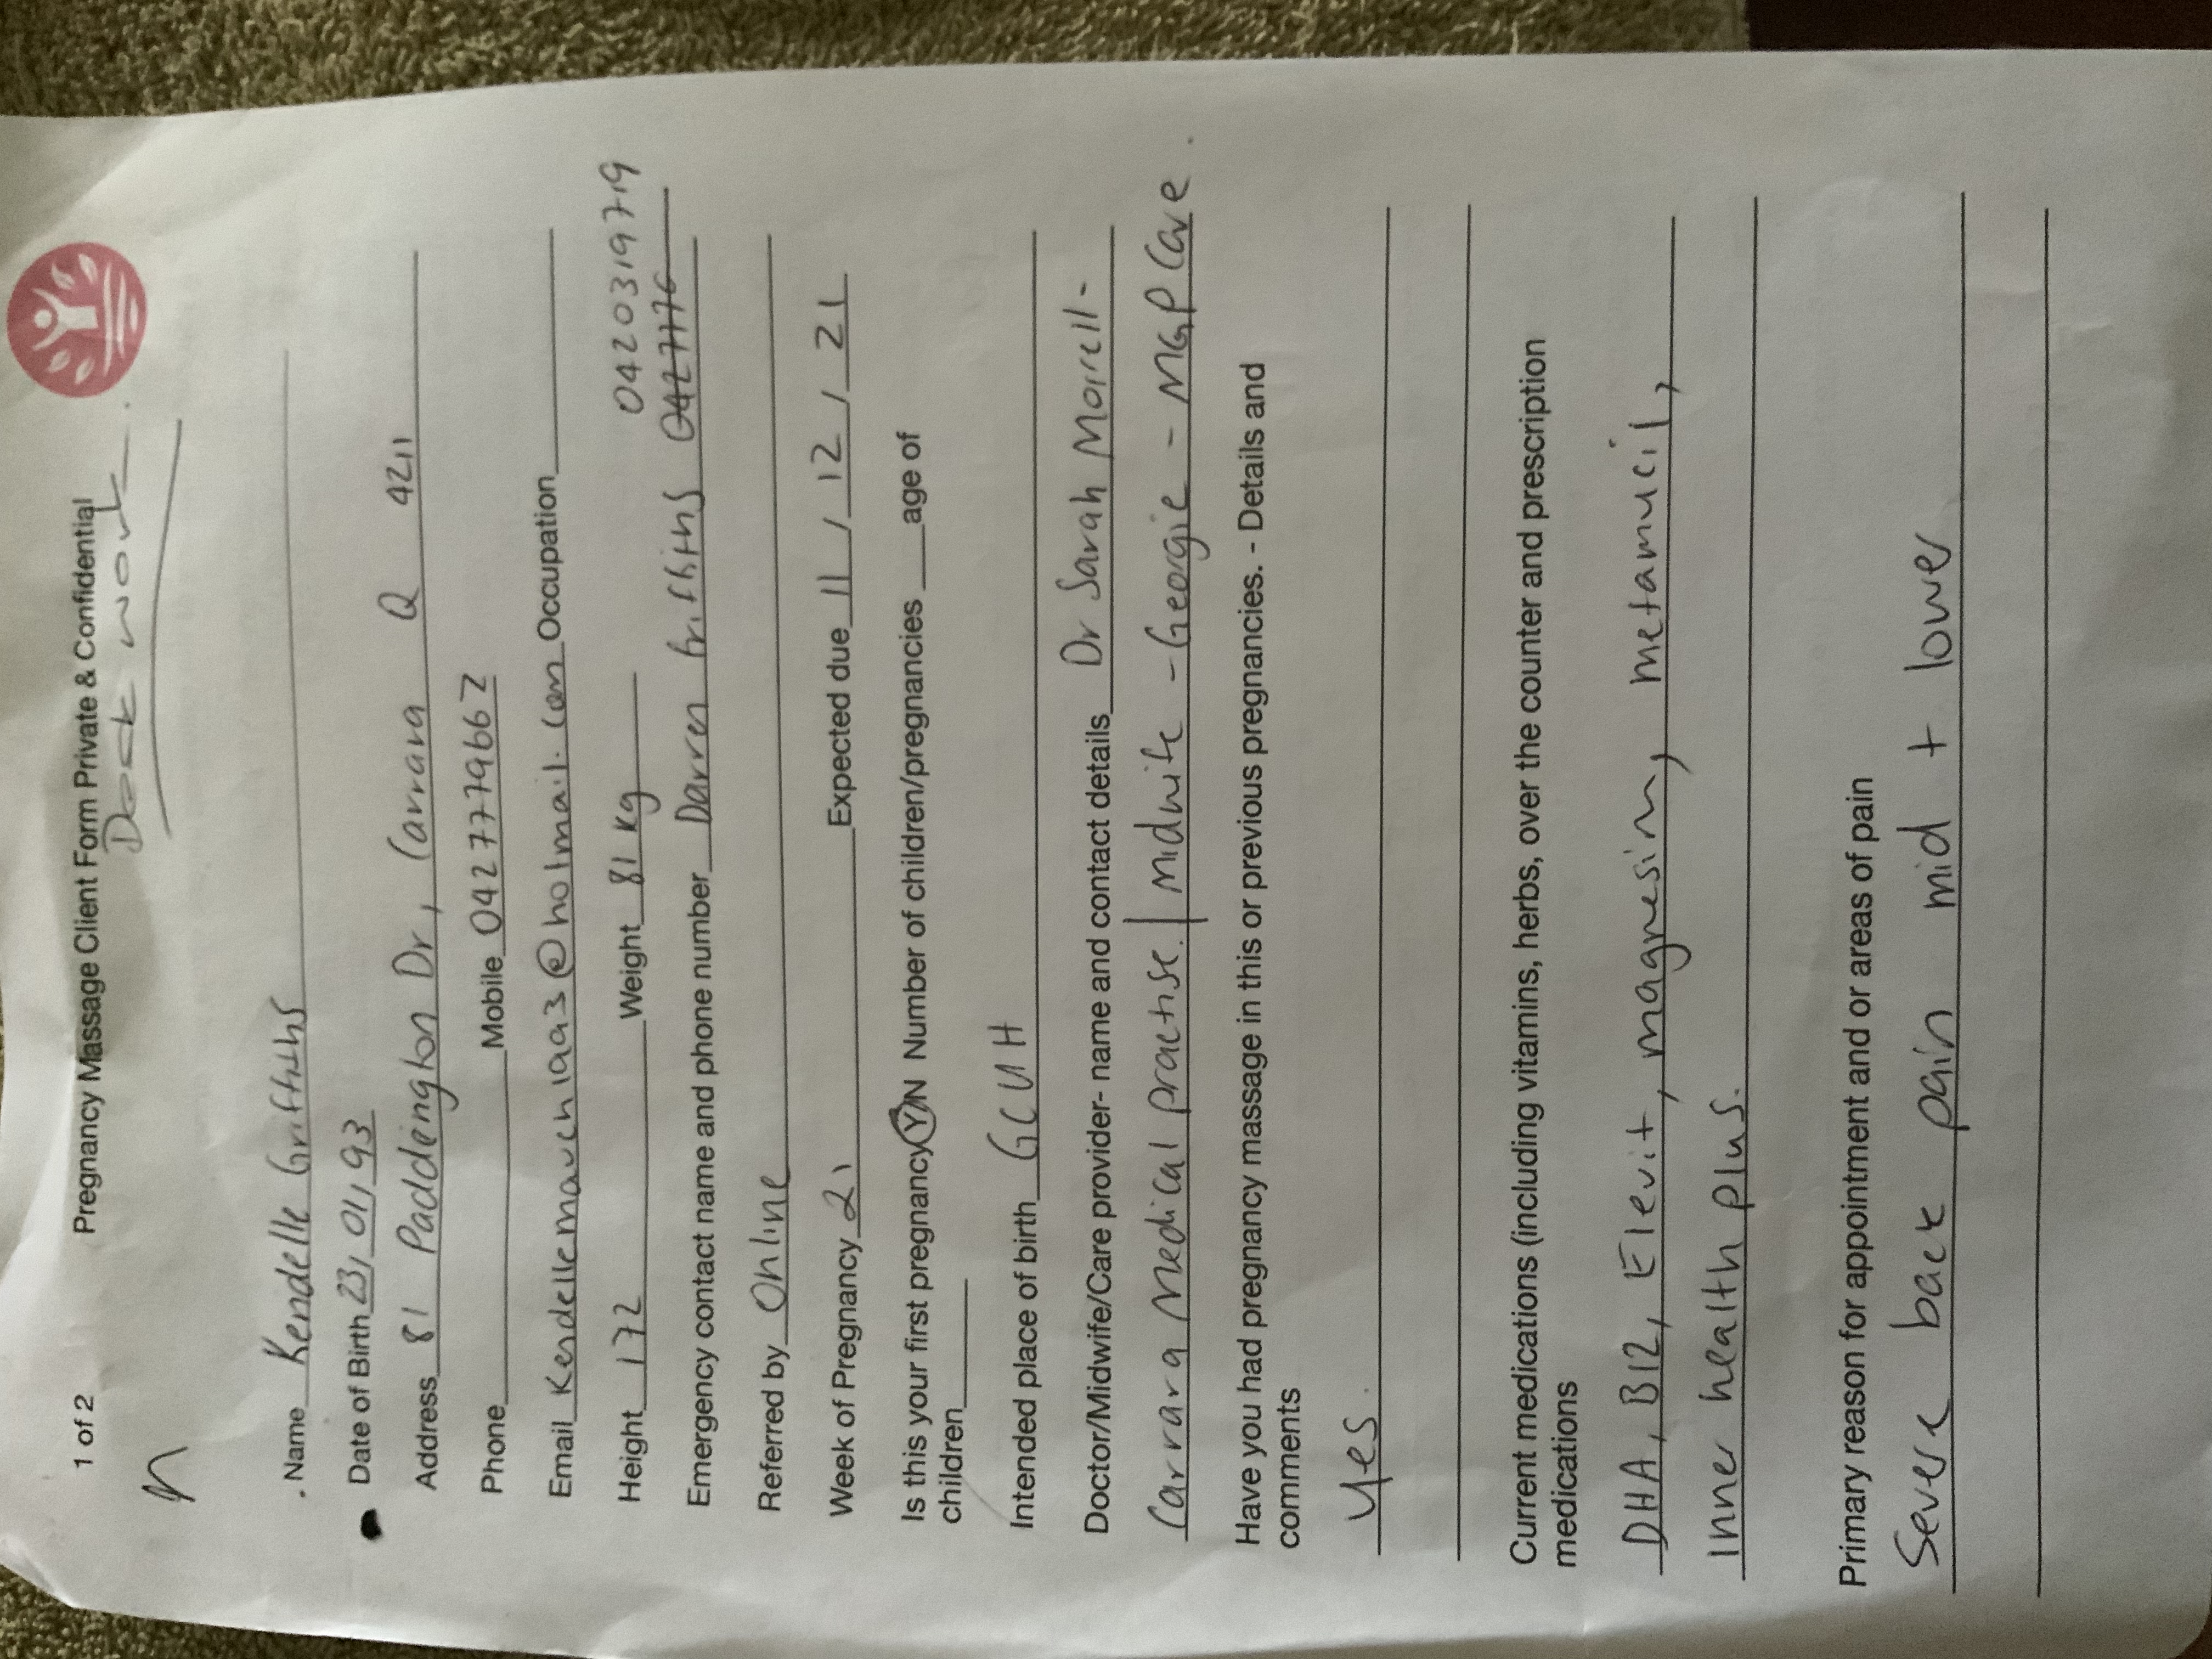 1 of 2 Pregnancy Massage Client Form Private & Confidential
Desk work.
Name Kendelle Griffiths
Date of Birth 23, 01, 93
Address 81 Paddington Dr, Carrara Q 4211
Phone Mobile 0427779667
Email Kendellemavch1993@hotmail.com Occupation
Height 172 Weight 81 kg 0420319719
Emergency contact name and phone number Darren Griffiths
Referred by Online
Week of Pregnancy 21 Expected due 11 / 12 / 21
Is this your first pregnancy Y/N Number of children/pregnancies age of
children
Intended place of birth GCUH
Doctor/Midwife/Care provider- name and contact details Dr Sarah Morrell -
Carrara Medical practise. | Midwife - Georgie - MGP Care.
Have you had pregnancy massage in this or previous pregnancies. - Details and
comments
Yes.
Current medications (including vitamins, herbs, over the counter and prescription
medications
DHA, B12, Elevit, magnesium, metamucil,
Inner health plus.
Primary reason for appointment and or areas of pain
Severe back pain mid + lower